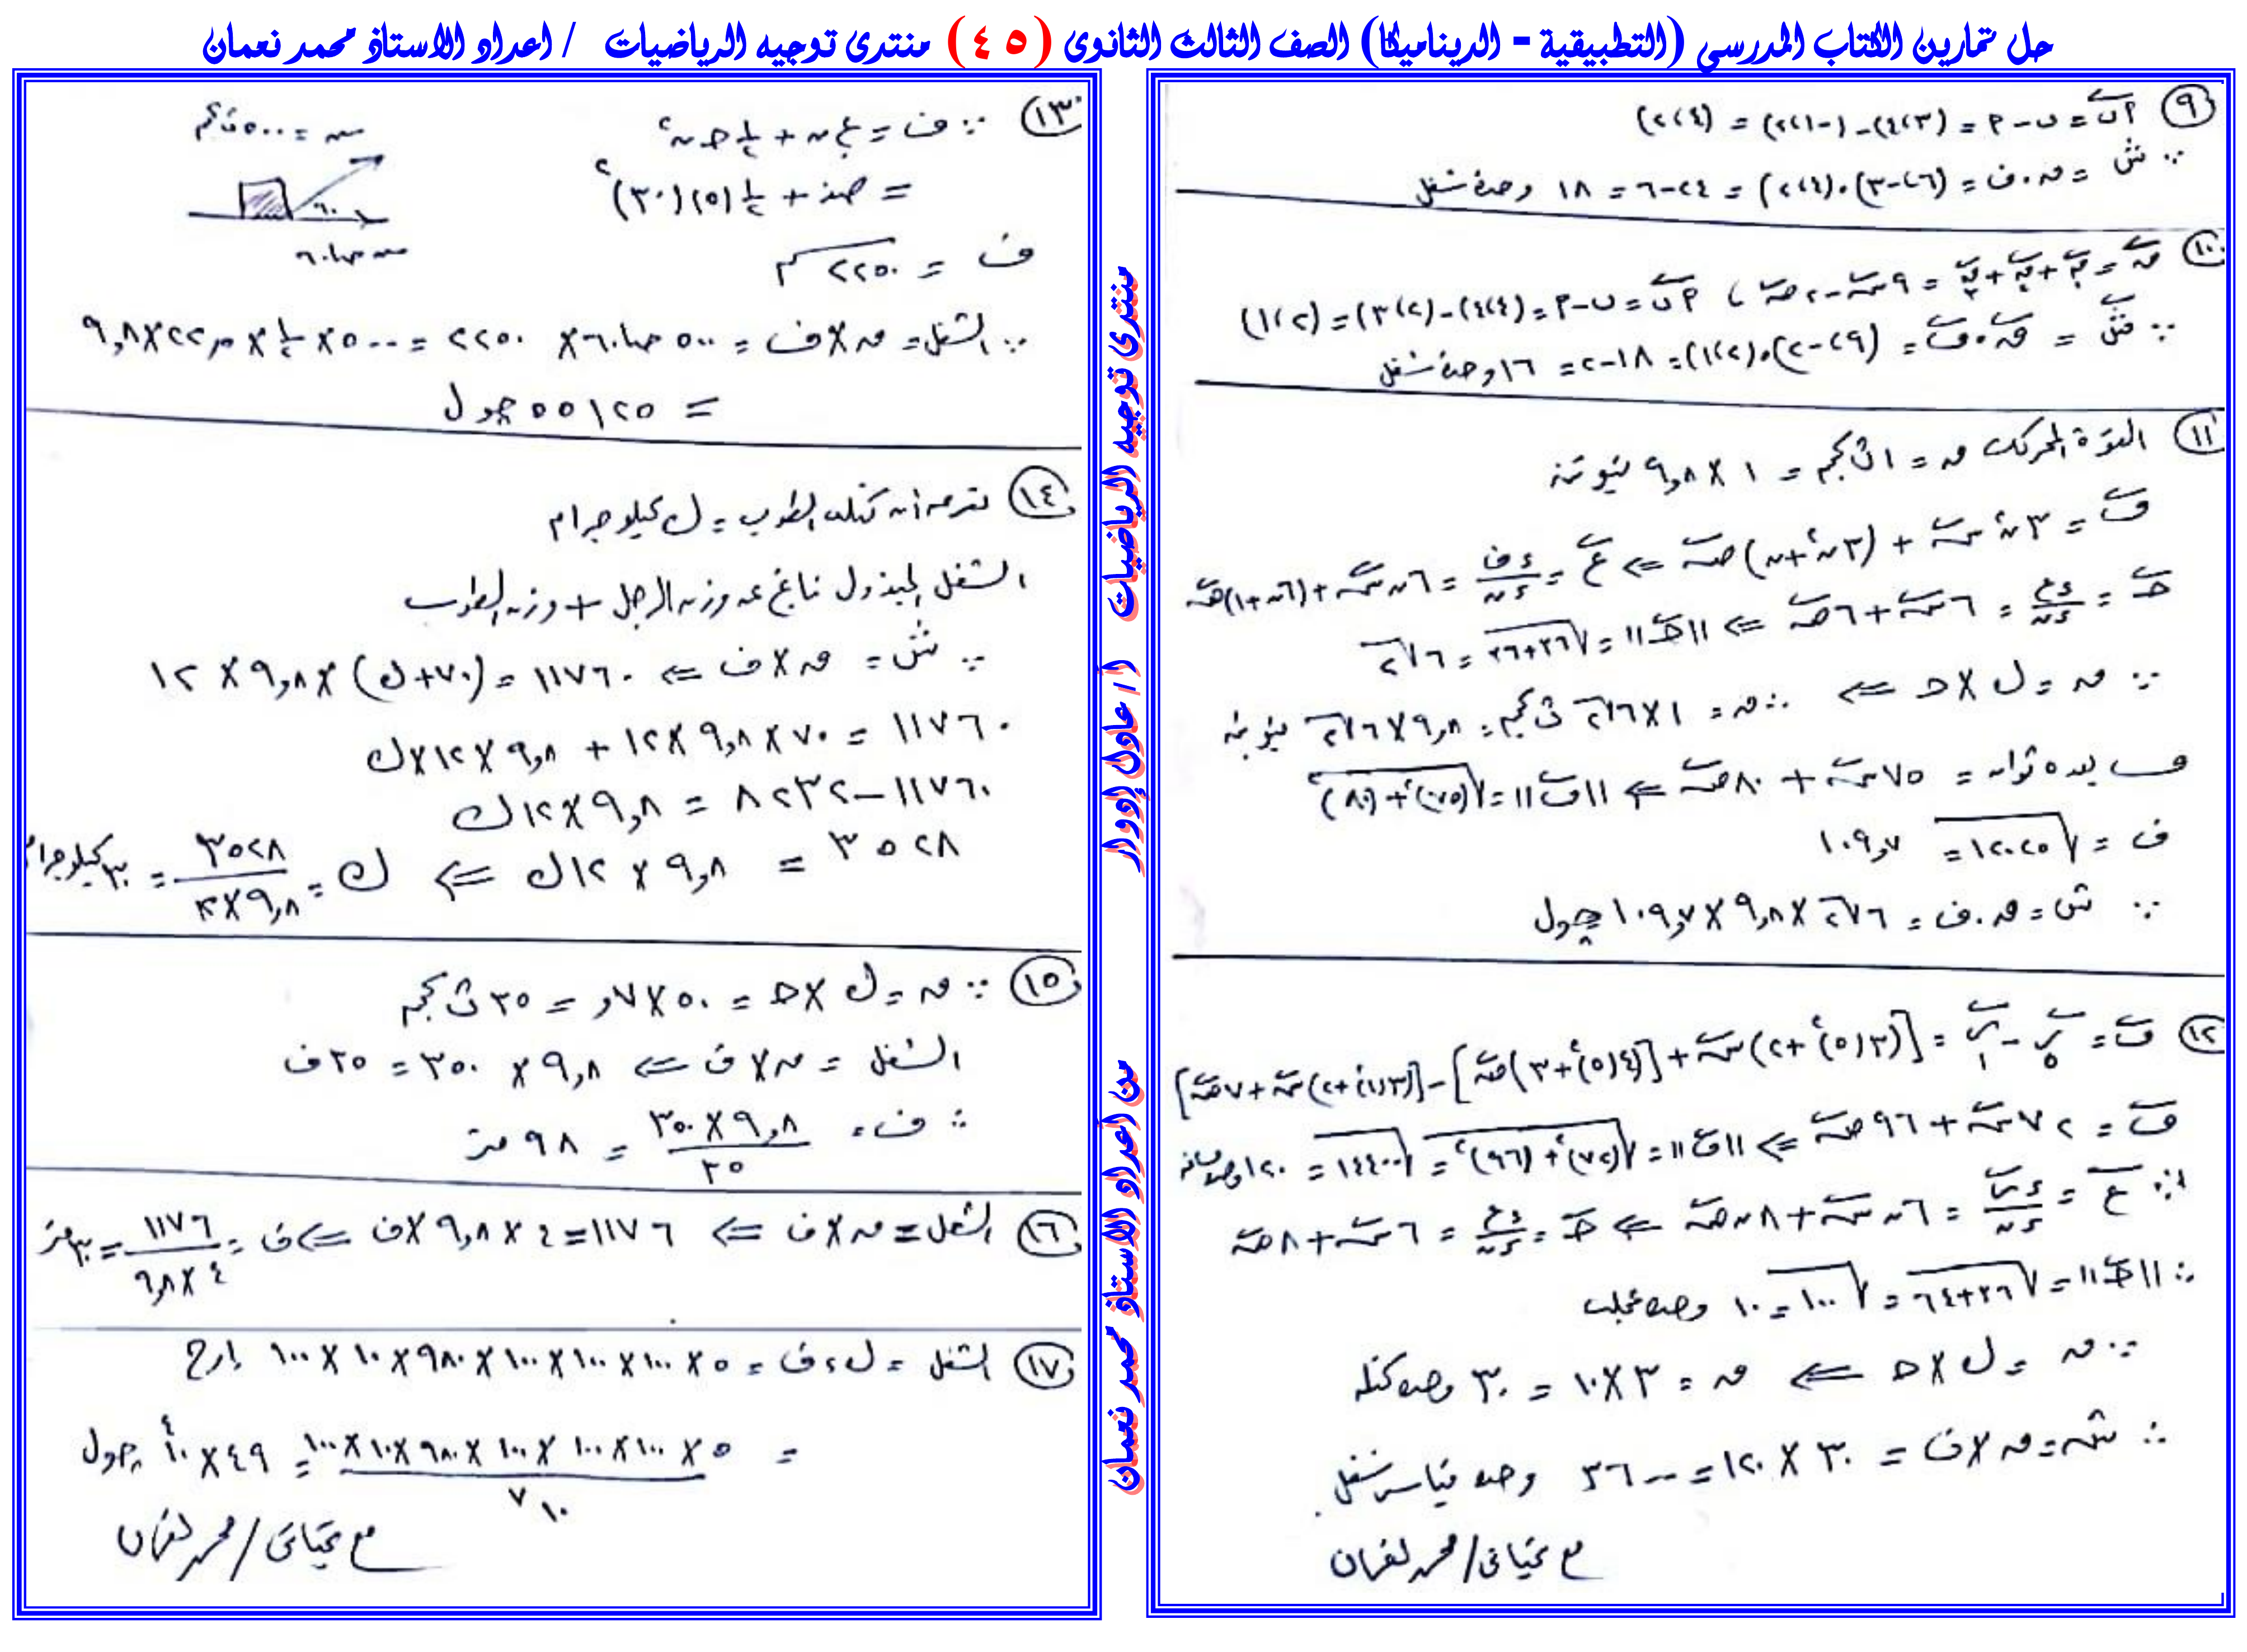 حل تمارين الكتاب المدرسي (التطبيقية - الديناميكا) الصف الثالث الثانوى (٤٥) منتدى توجيه الرياضيات / اعداد الاستاذ محمد نعمان
٩ أب = ب - أ = (٣، ٤) - (-١، ٢) = (٤، ٢)
∵ ش = ق . ف = (٦، -٣) . (٤، ٢) = ٢٤ - ٦ = ١٨ وحدة شغل
١٠ ق = ق١ + ق٢ + ق٣ = ٩ س - ٢ ص ، أب = ب - أ = (٤، ٤) - (٢، ٣) = (٢، ١)
∵ ش = ق . ف = (٩، -٢) . (٢، ١) = ١٨ - ٢ = ١٦ وحدة شغل
١١ القوة المحركة ق = ١ ث كجم = ١ × ٩,٨ نيوتن
ف = ٣ن٢ س + (٣ن٢ + ن) ص ⇐ ع = دف/دن = ٦ن س + (٦ن + ١) ص
ج = دع/دن = ٦ س + ٦ ص ⇐ ||ج|| = √(٣٦ + ٣٦) = ٦√٢
∵ ق = ك × ج ⇐ ∴ ق = ١ × ٦√٢ ث كجم = ٩,٨ × ٦√٢ نيوتن
ف بعد ٥ ثوان = ٧٥ س + ٨٠ ص ⇐ ||ف|| = √((٧٥)٢ + (٨٠)٢)
ف = √١٢٠٢٥ = ١٠٩,٧
∵ ش = ق . ف = ٦√٢ × ٩,٨ × ١٠٩,٧ جول
١٢ ف = ر٥ - ر١ = [(٣(٥)٢ + ٢) س + (٤(٥)٢ + ٣) ص] - [(٣(١)٢ + ٢) س + ٧ ص]
ف = ٧٢ س + ٩٦ ص ⇐ ||ف|| = √((٧٢)٢ + (٩٦)٢) = √١٤٤٠٠ = ١٢٠
∵ ع = در/دن = ٦ن س + ٨ن ص ⇐ ج = دع/دن = ٦ س + ٨ ص
∴ ||ج|| = √(٣٦ + ٦٤) = √١٠٠ = ١٠ وحدة عجلة
∵ ق = ك × ج ⇐ ق = ٣ × ١٠ = ٣٠ وحدة كتلة
∴ ش = ق × ف = ٣٠ × ١٢٠ = ٣٦٠٠ وحدة قياس شغل
مع تحياتى / محمد نعمان
١٣ ∵ ف = ع. ن + ١/٢ ج ن٢
= صفر + ١/٢ (٥) (٣٠)٢
ف = ٢٢٥٠ م
س = ٥٠٠ ث كجم
٦٠
س جتا ٦٠
∵ الشغل = ق × ف = ٥٠٠ جتا ٦٠ × ٢٢٥٠ = ٥٠٠ × ١/٢ × ٢٢,٥ × ٩,٨
= ٥٥١٢٥ جول
١٤ نفرض أن كتلة الطوب = ك كيلو جرام
الشغل المبذول ناتج عن وزن الرجل + وزن الطوب
∵ ش = ق × ف ⇐ ١١٧٦٠ = (٧٠ + ك) × ٩,٨ × ١٢
١١٧٦٠ = ٧٠ × ٩,٨ × ١٢ + ٩,٨ × ١٢ × ك
١١٧٦٠ - ٨٢٣٢ = ٩,٨ × ١٢ ك
٣٥٢٨ = ٩,٨ × ١٢ ك ⇐ ك = ٣٥٢٨/(٩,٨ × ١٢) = ٣٠ كيلو جرام
١٥ ∵ ق = ك × ج = ٥٠ × ٠,٧ = ٣٥ ث كجم
الشغل = ق × ف ⇐ ٩,٨ × ٣٥٠ = ٣٥ ف
∴ ف = (٩,٨ × ٣٥٠)/٣٥ = ٩٨ متر
١٦ الشغل = ق × ف ⇐ ١١٧٦ = ٤ × ٩,٨ × ف ⇐ ف = ١١٧٦/(٤ × ٩,٨) = ٣٠ متر
١٧ الشغل = ك د ف = ٥ × ١٠٠ × ١٠٠ × ١٠٠ × ٩٨٠ × ١٠ × ١٠٠ إرج
= (٥ × ١٠٠ × ١٠٠ × ١٠٠ × ٩٨٠ × ١٠ × ١٠٠)/١٠٧ = ٤٩ × ١٠٤ جول
مع تحياتى / محمد نعمان
منتدى توجيه الرياضيات أ / عادل إدوار
من اعداد الاستاذ محمد نعمان